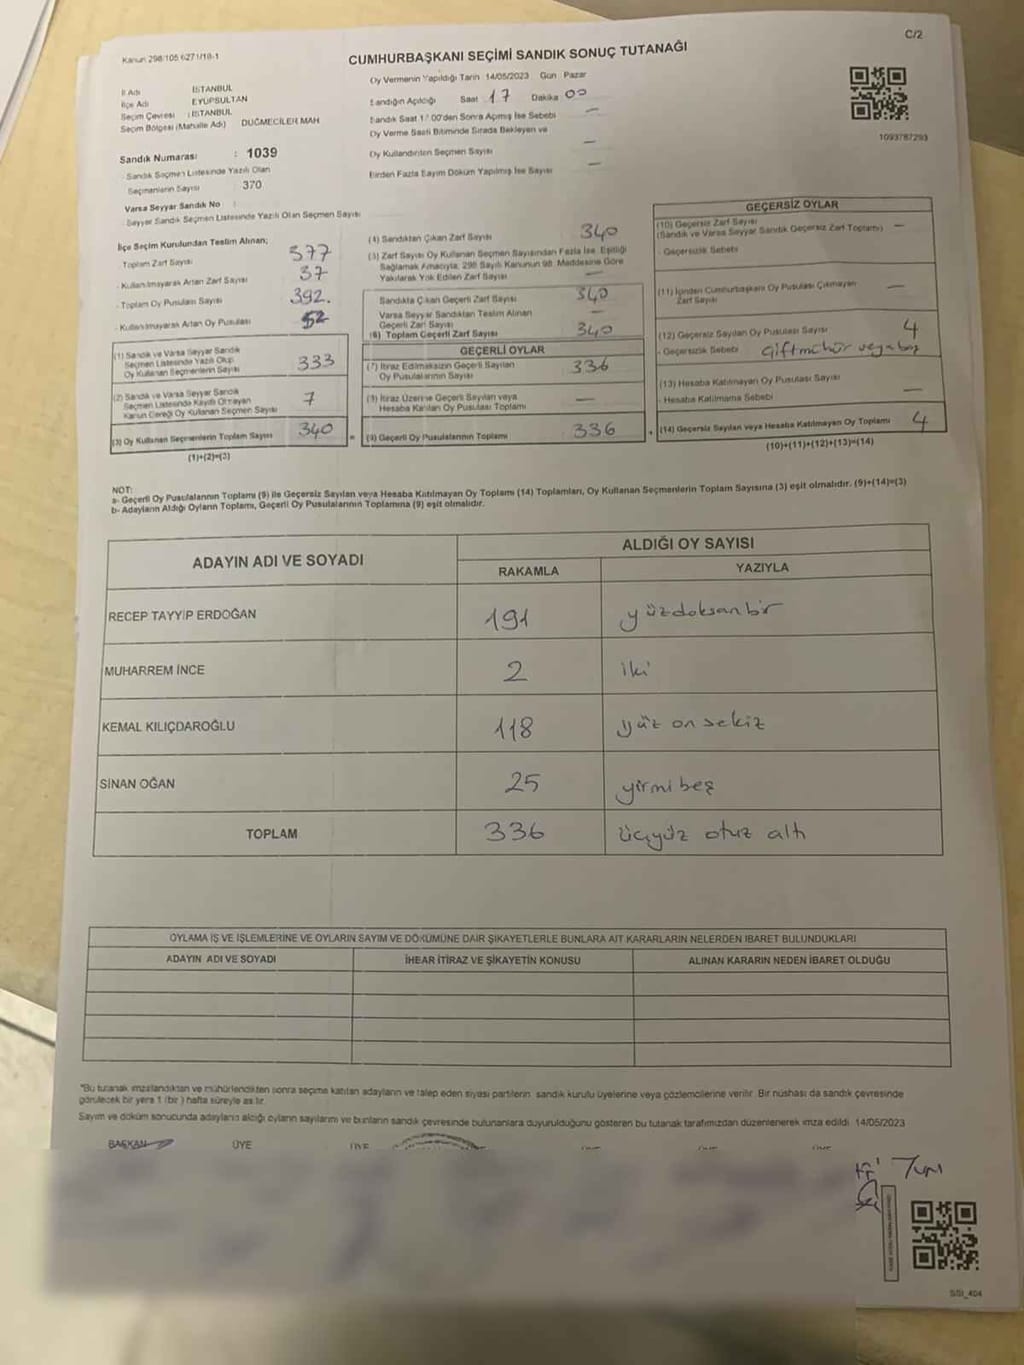 C/2
Kanun 298/105 6271/18-1
CUMHURBAŞKANI SEÇİMİ SANDIK SONUÇ TUTANAĞI
İl Adı İSTANBUL
İlçe Adı EYÜPSULTAN
Seçim Çevresi : İSTANBUL
Seçim Bölgesi (Mahalle Adı) DÜĞMECİLER MAH
Sandık Numarası : 1039
Sandık Seçmen Listesinde Yazılı Olan
Seçmenlerin Sayısı 370
Varsa Seyyar Sandık No :
Seyyar Sandık Seçmen Listesinde Yazılı Olan Seçmen Sayısı
Oy Vermenin Yapıldığı Tarih 14/05/2023 Gün Pazar
Sandığın Açıldığı Saat 17 Dakika 00
Sandık Saat 17:00'den Sonra Açmış İse Sebebi —
Oy Verme Saati Bitiminde Sırada Bekleyen ve
Oy Kullandırılan Seçmen Sayısı —
Birden Fazla Sayım Döküm Yapılmış İse Sayısı —
1093787293
İlçe Seçim Kurulundan Teslim Alınan;
Toplam Zarf Sayısı 377
- Kullanılmayarak Artan Zarf Sayısı 37
- Toplam Oy Pusulası Sayısı 392.
- Kullanılmayarak Artan Oy Pusulası 52
(1) Sandık ve Varsa Seyyar Sandık
Seçmen Listesinde Yazılı Olup
Oy Kullanan Seçmenlerin Sayısı 333
(2) Sandık ve Varsa Seyyar Sandık
Seçmen Listesinde Kayıtlı Olmayan
Kanun Gereği Oy Kullanan Seçmen Sayısı 7
(3) Oy Kullanan Seçmenlerin Toplam Sayısı 340
(1)+(2)=(3)
(4) Sandıktan Çıkan Zarf Sayısı 340
(5) Zarf Sayısı Oy Kullanan Seçmen Sayısından Fazla İse, Eşitliği
Sağlamak Amacıyla, 298 Sayılı Kanunun 98. Maddesine Göre
Yakılarak Yok Edilen Zarf Sayısı —
Sandıkta Çıkan Geçerli Zarf Sayısı 340
Varsa Seyyar Sandıktan Teslim Alınan
Geçerli Zarf Sayısı —
(6) Toplam Geçerli Zarf Sayısı 340
GEÇERLİ OYLAR
(7) İtiraz Edilmeksizin Geçerli Sayılan
Oy Pusulalarının Sayısı 336
(8) İtiraz Üzerine Geçerli Sayılan veya
Hesaba Katılan Oy Pusulası Toplamı —
= (9) Geçerli Oy Pusulalarının Toplamı 336
GEÇERSİZ OYLAR
(10) Geçersiz Zarf Sayısı
(Sandık ve Varsa Seyyar Sandık Geçersiz Zarf Toplamı) —
- Geçersizlik Sebebi
(11) İçinden Cumhurbaşkanı Oy Pusulası Çıkmayan
Zarf Sayısı —
(12) Geçersiz Sayılan Oy Pusulası Sayısı 4
- Geçersizlik Sebebi Çiftmühür veya boş
(13) Hesaba Katılmayan Oy Pusulası Sayısı
- Hesaba Katılmama Sebebi —
+ (14) Geçersiz Sayılan veya Hesaba Katılmayan Oy Toplamı 4
(10)+(11)+(12)+(13)=(14)
NOT:
a- Geçerli Oy Pusulalarının Toplamı (9) ile Geçersiz Sayılan veya Hesaba Katılmayan Oy Toplamı (14) Toplamları, Oy Kullanan Seçmenlerin Toplam Sayısına (3) eşit olmalıdır. (9)+(14)=(3)
b- Adayların Aldığı Oyların Toplamı, Geçerli Oy Pusulalarının Toplamına (9) eşit olmalıdır.
ADAYIN ADI VE SOYADI
ALDIĞI OY SAYISI
RAKAMLA YAZIYLA
RECEP TAYYİP ERDOĞAN 191 yüzdoksanbir
MUHARREM İNCE 2 iki
KEMAL KILIÇDAROĞLU 118 yüz on sekiz
SİNAN OĞAN 25 yirmi beş
TOPLAM 336 üçyüz otuz altı
OYLAMA İŞ VE İŞLEMLERİNE VE OYLARIN SAYIM VE DÖKÜMÜNE DAİR ŞİKAYETLERLE BUNLARA AİT KARARLARIN NELERDEN İBARET BULUNDUKLARI
ADAYIN ADI VE SOYADI İHBAR İTİRAZ VE ŞİKAYETİN KONUSU ALINAN KARARIN NEDEN İBARET OLDUĞU
*Bu tutanak imzalandıktan ve mühürlendikten sonra seçime katılan adayların ve talep eden siyasi partilerin sandık kurulu üyelerine veya gözlemcilerine verilir. Bir nüshası da sandık çevresinde
görülecek bir yere 1 (bir) hafta süreyle asılır.
Sayım ve döküm sonucunda adayların aldığı oyların sayılarını ve bunların sandık çevresinde bulunanlara duyurulduğunu gösteren bu tutanak tarafımızdan düzenlenerek imza edildi. 14/05/2023
BAŞKAN ÜYE ÜYE
SSI_404